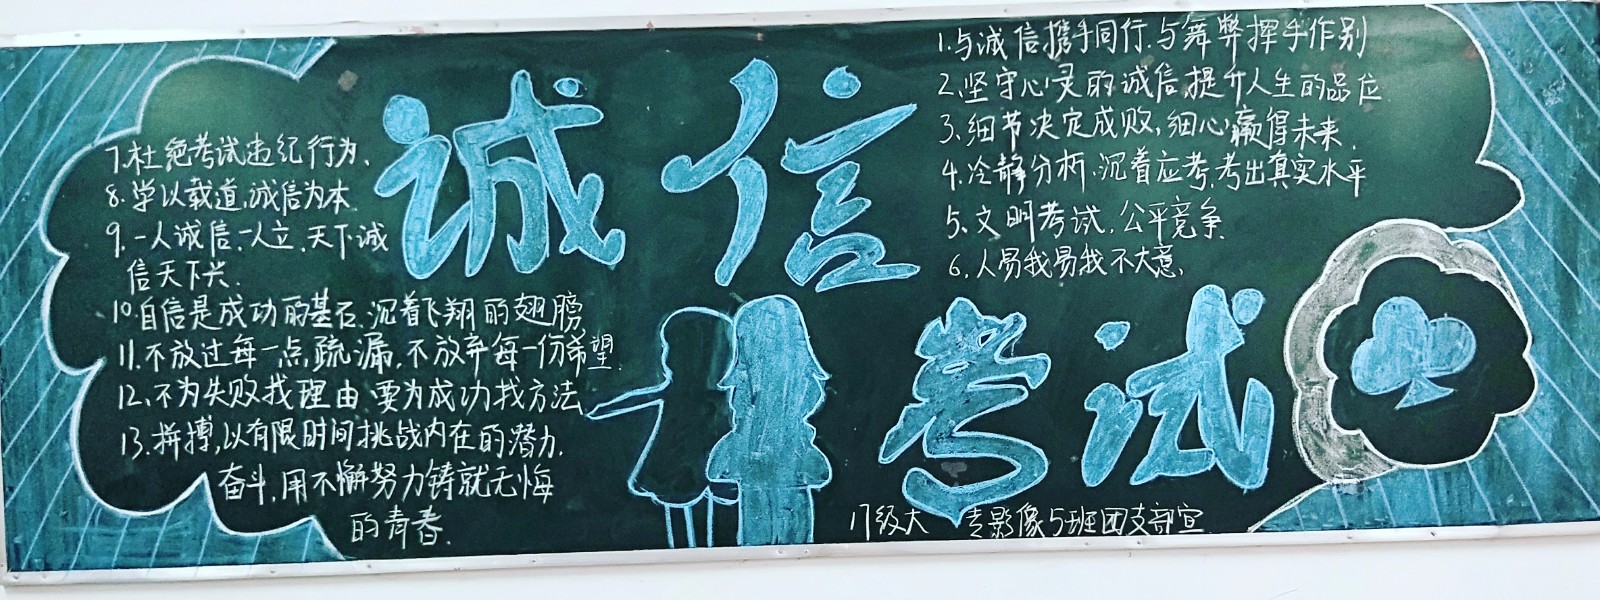 诚信
考试
1.与诚信携手同行.与舞弊挥手作别
2.坚守心灵的诚信,提升人生的品位
3.细节决定成败,细心赢得未来.
4.冷静分析.沉着应考,考出真实水平
5.文明考试,公平竞争
6.人易我易我不大意.
7.杜绝考试违纪行为.
8.学以载道,诚信为本
9.一人诚信,一人立,天下诚
信天下兴.
10.自信是成功的基石,沉着飞翔的翅膀
11.不放过每一点疏漏,不放弃每一份希望
12.不为失败找理由,要为成功找方法
13.拼搏,以有限时间挑战内在的潜力.
奋斗,用不懈努力铸就无悔
的青春.
17级大专影像5班团支部宣